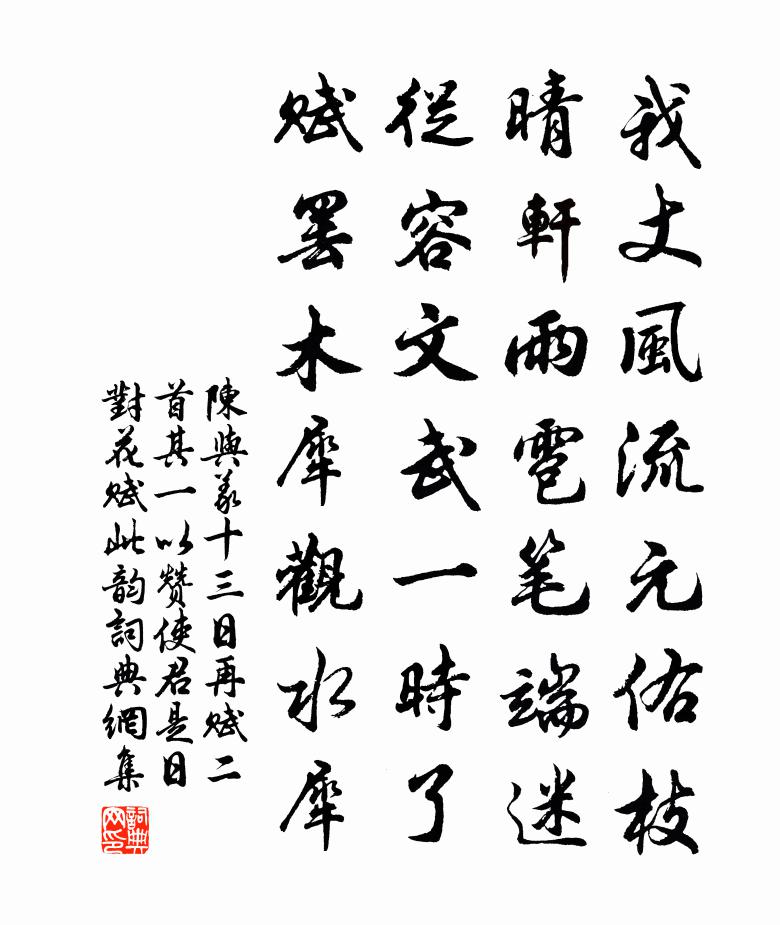 我丈風流元佑枝
晴軒雨雹笔端迷
從容文武一時了
賦罢木犀觀水犀
陳與義十三日再賦二
首其一以赞使君是日
對花賦此韵詞典網集
詞典网印